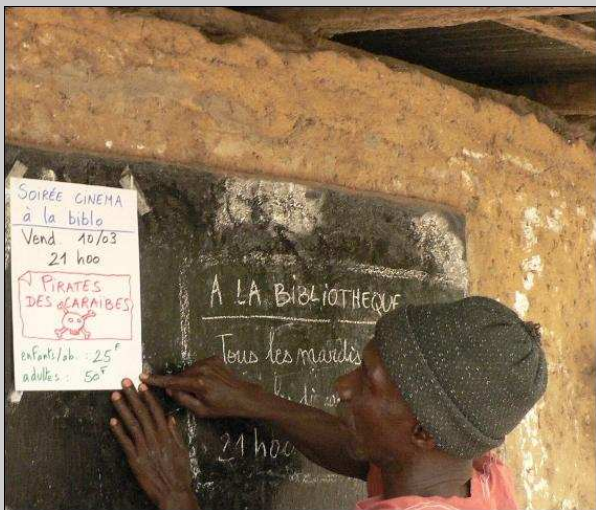 SOIRÉE CINEMA
à la biblo
Vend. 10/03
21 h00
PIRATES
DES CARAIBES
enfants/ab. : 25F
adultes : 50F
A LA BIBLIOTHEQUE
Tous les mardis
21 h00